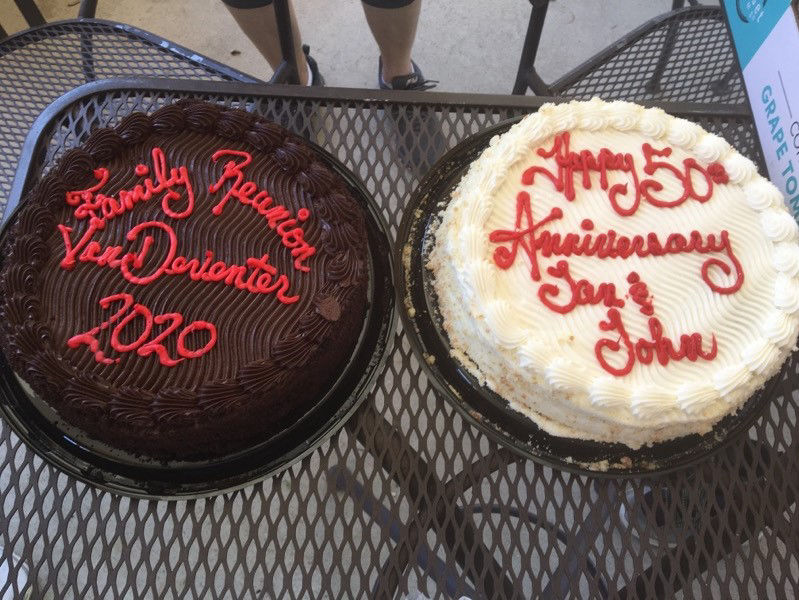 Family Reunion
VanDeventer
2020
Happy 50th
Anniversary
Jan &
John
GRAPE TOM